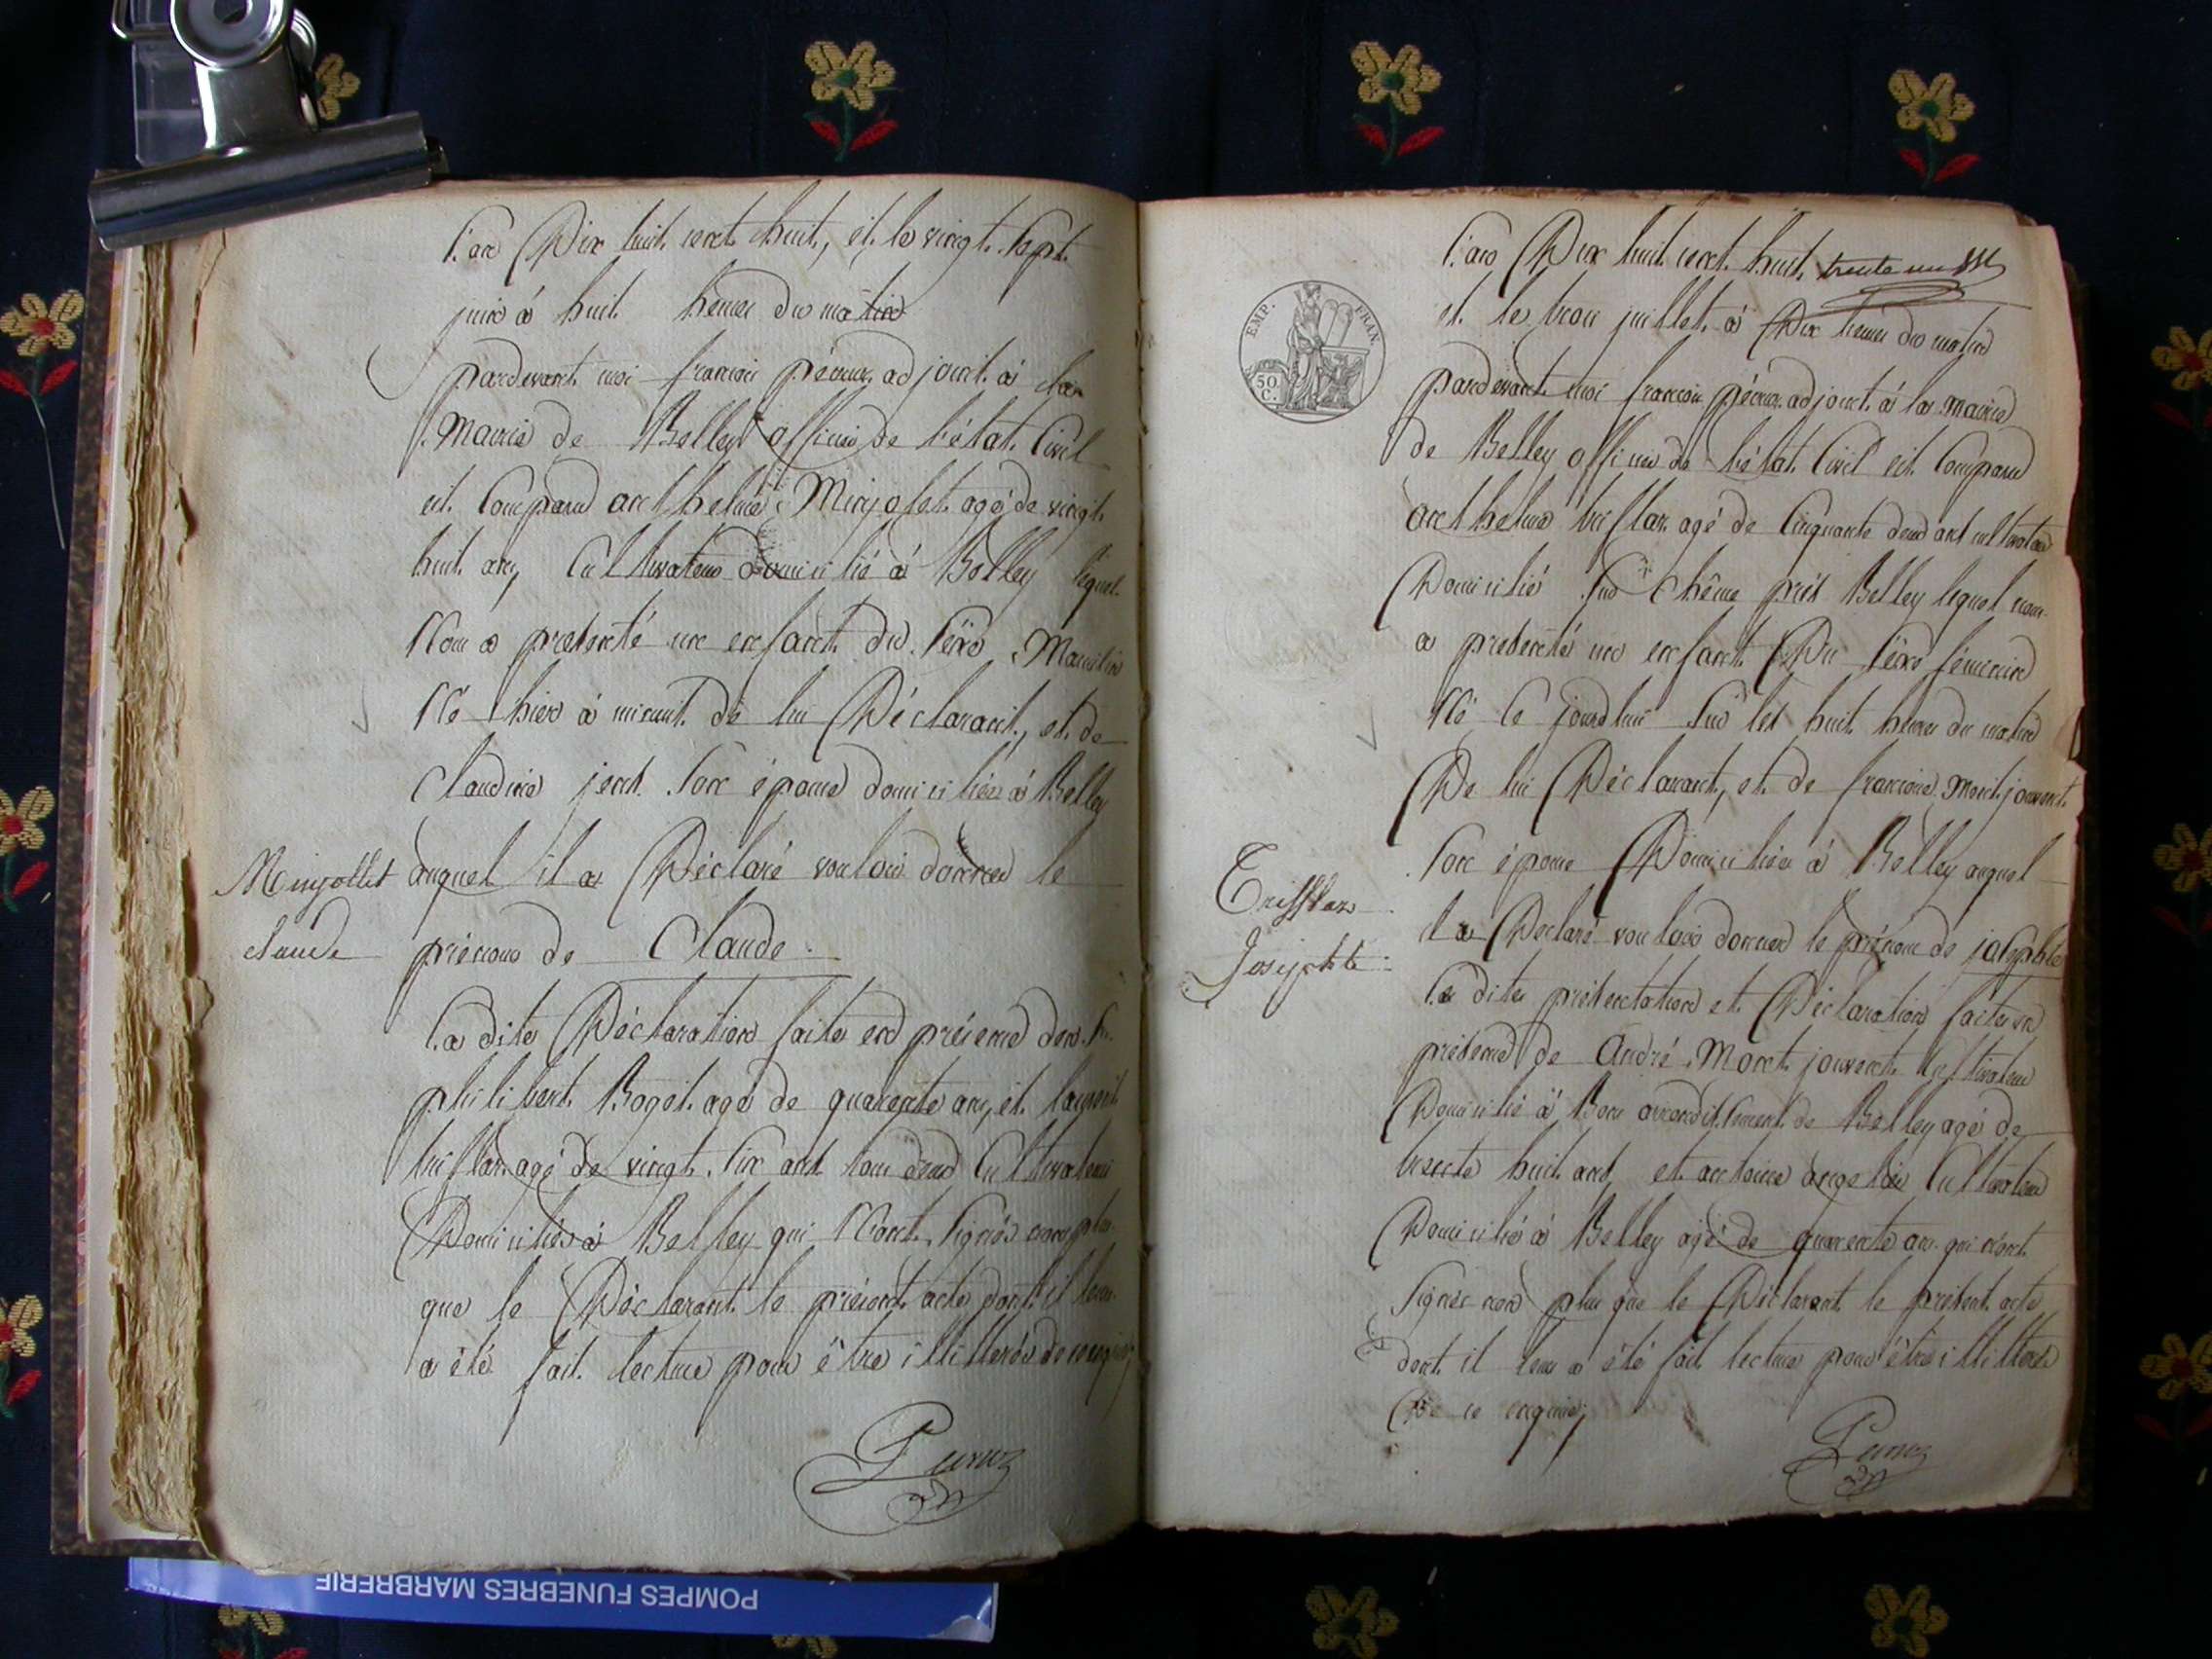 L'an Dix huit cent huit, et le vingt sept
juin à huit heures du matin
pardevant moi françois péruz adjoint à la
Mairie de Belley officier de l'état Civil
est Comparu anthelme Minjolet agé de vingt
huit ans, Cultivateur domicilié à Belley lequel
Nous a présenté un enfant du séxe Masculin
Né hier à minuit de lui Déclarant, et de
Claudine jent son épouse domiciliée à Belley
auquel il a Déclaré vouloir donner le
prénom de Claude.
Minjollet
claude
La dite Déclaration faite en présence de
philibert Boget agé de quarente ans, et laurent
trifflaz agé de vingt six ans tous deux Cultivateurs
Domiciliés à Belley qui N'ont signés non plus
que le Déclarant le présent acte dont il leur
a été fait lecture pour être illittérés de ce enquis
Peruz
L'an Dix huit cent huit, trente un
et le trois juillet à Dix heures du matin
EMP. FRAN.
50 C.
pardevant moi françois péruz adjoint à la Mairie
de Belley officier de l'état Civil est Comparu
anthelme triflaz agé de Cinquante deux ans cultivateur
Domicilié sur Chême près Belley lequel nous
a présenté un enfant Du séxe féminin
Né Ce jourd'hui sur les huit heures du matin
De lui Déclarant, et de françoise Montjouvent
son épouse Domiciliée à Belley auquel
il a Déclaré vouloir donner le prénom de josephte
Triffflaz
Josephte
La dite présentation et Déclaration faite en
présence de André Montjouvent Cultivateur
Domicilié à Bon arrondissement de Belley agé de
trente huit ans, et antoine angelier Cultivateur
Domicilié à Belley agé de quarente ans qui n'ont
signés non plus que le Déclarant le présent acte
dont il leur a été fait lecture pour être illittérés
De ce enquis
Peruz
POMPES FUNEBRES MARBRERIE